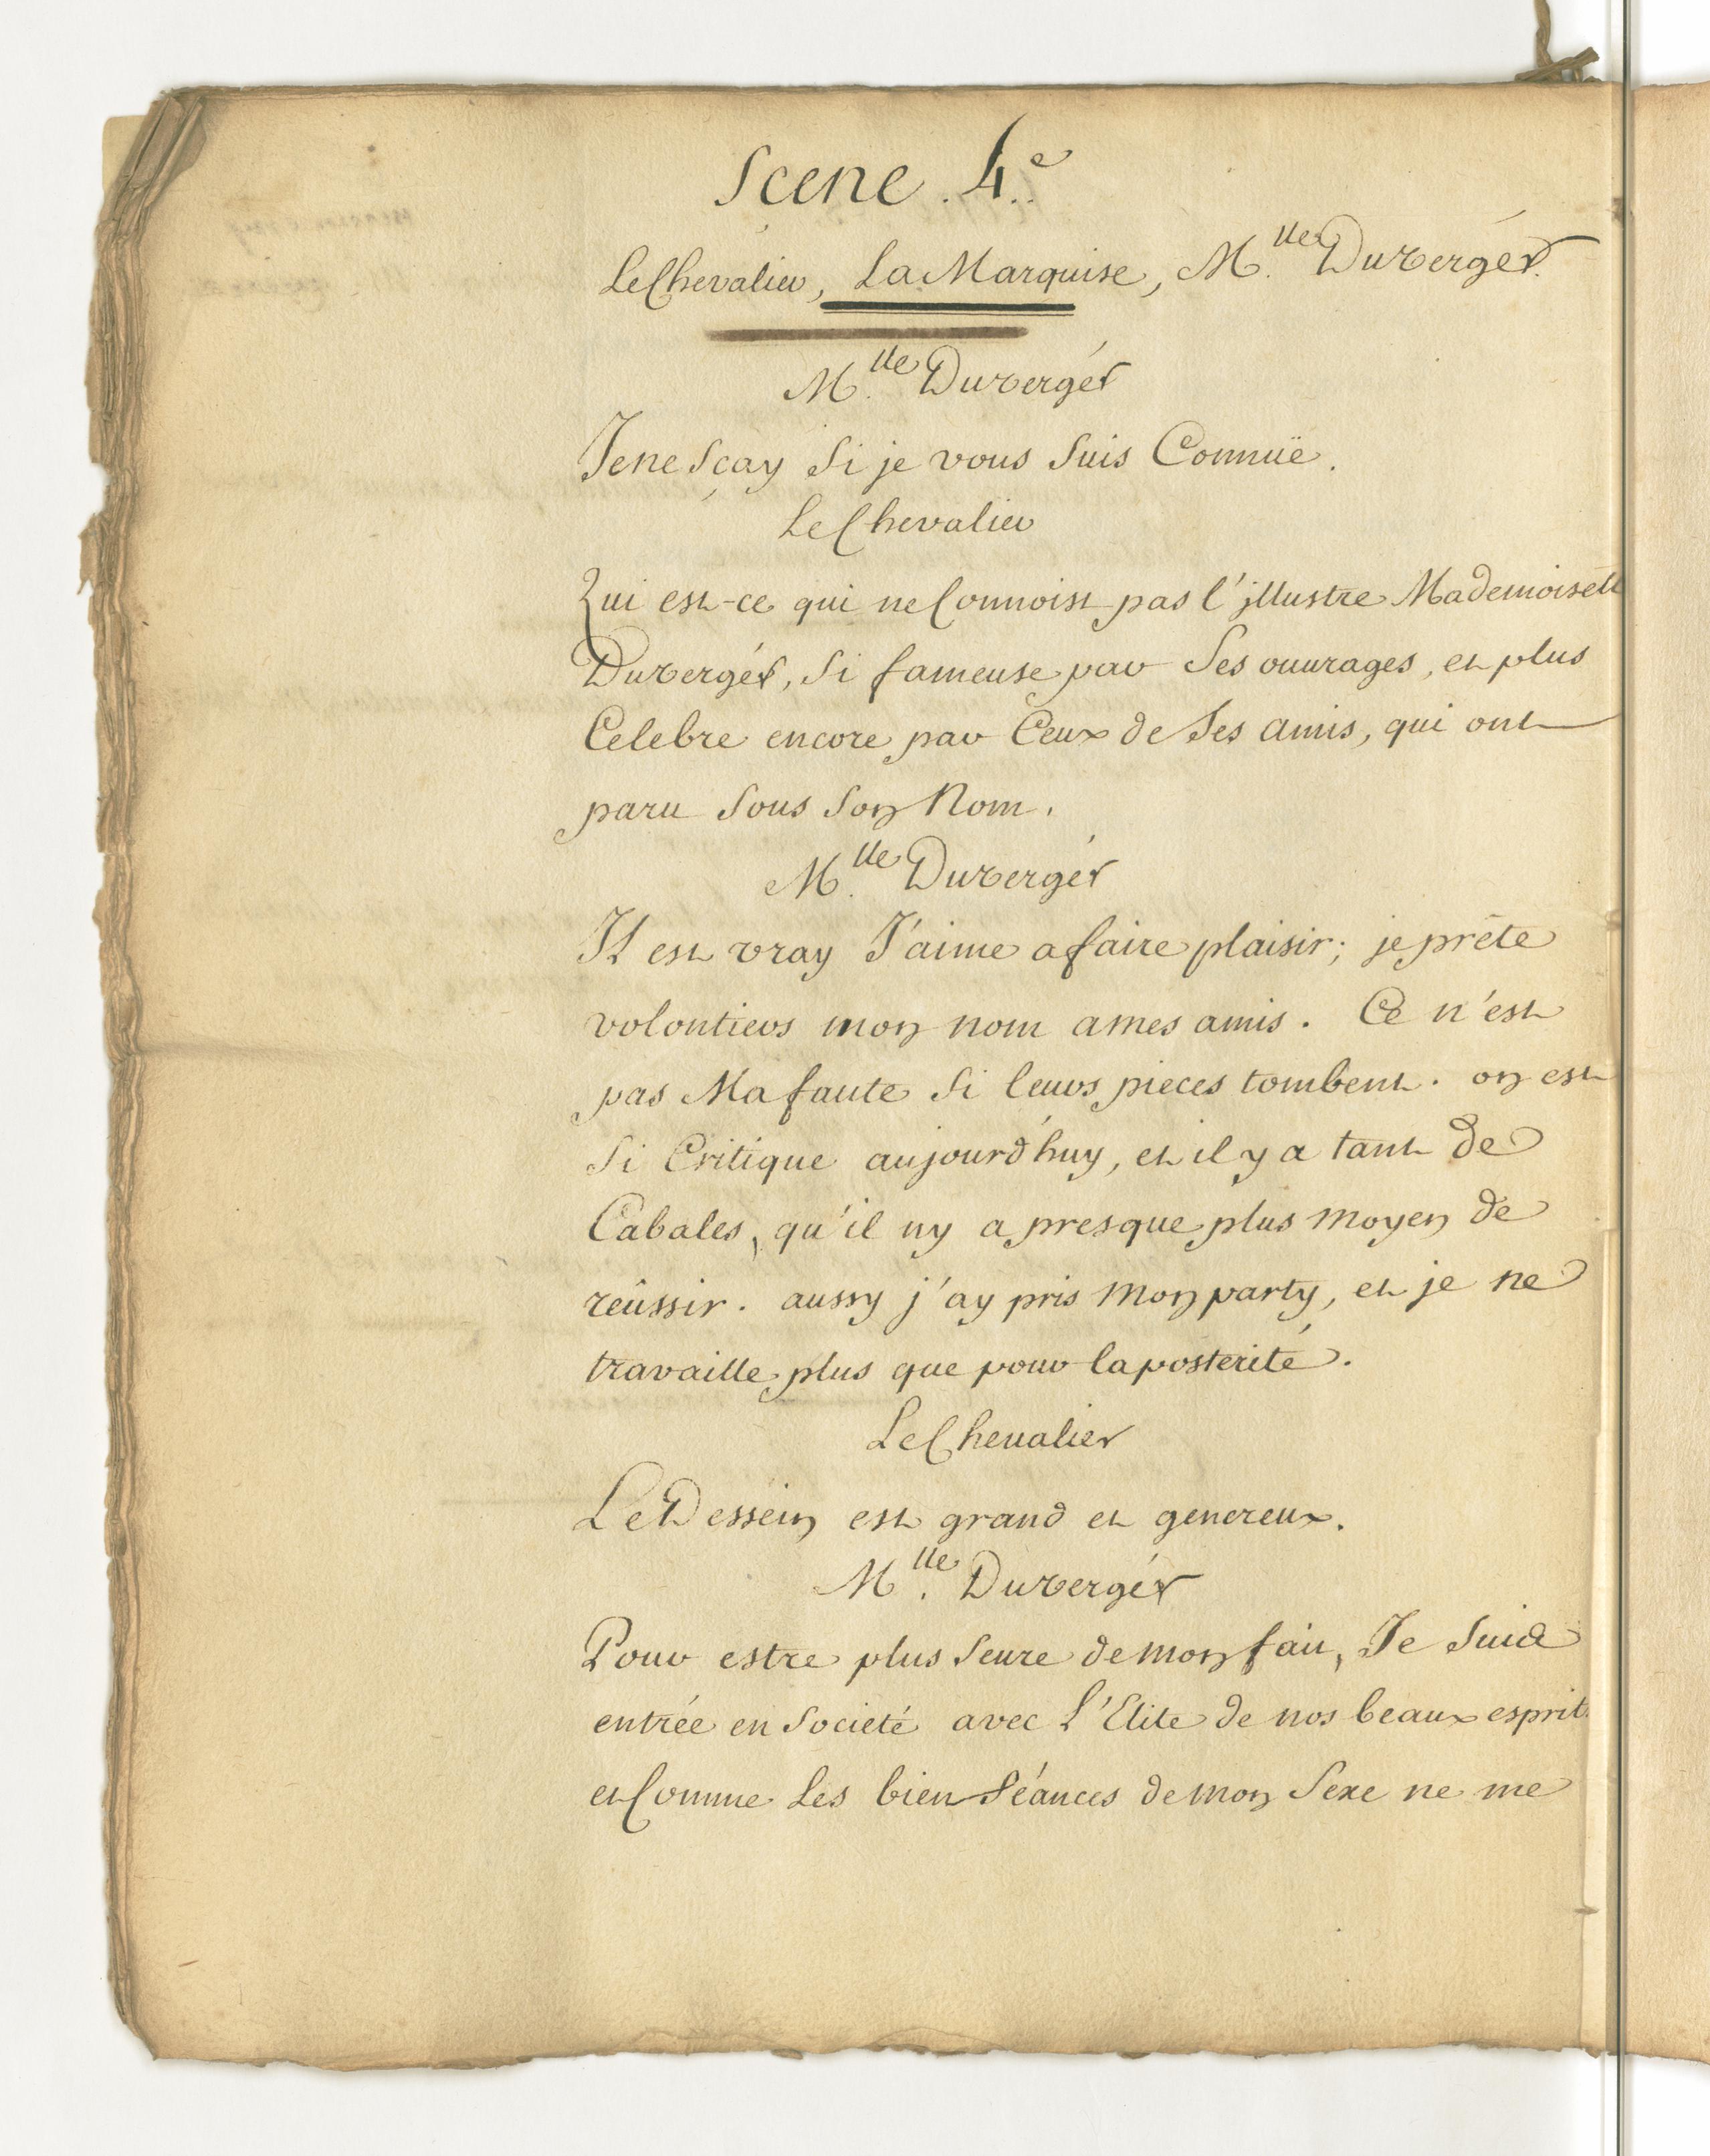 Scene. 4.e
Le Chevalier, La Marquise, M.lle Duvergér.
M.lle Duvergér
Je ne sçay si je vous suis Connüe.
Le Chevalier
Qui est-ce qui ne Connoist pas l'jllustre Mademoiselle
Duvergér, si fameuse par ses ouurages, et plus
Celebre encore par Ceux de ses amis, qui ont
paru sous son Nom.
M.lle Duvergér
Il est vray J'aime a faire plaisir; je prête
volontiers mon nom a mes amis. Ce n'est
pas Ma faute si leurs pieces tombent. on est
si Critique aujourd'huy, et il y a tant de
Cabales, qu'il ny a presque plus moyen de
reüssir. aussy j'ay pris mon party, et je ne
travaille plus que pour la posterité.
Le Cheualier
Le Dessein est grand et genereux.
M.lle Duvergér
Pour estre plus seure de mon fait, Je suis
entrée en societé avec l'Elite de nos beaux esprits
et Comme les bien séances de mon sexe ne me